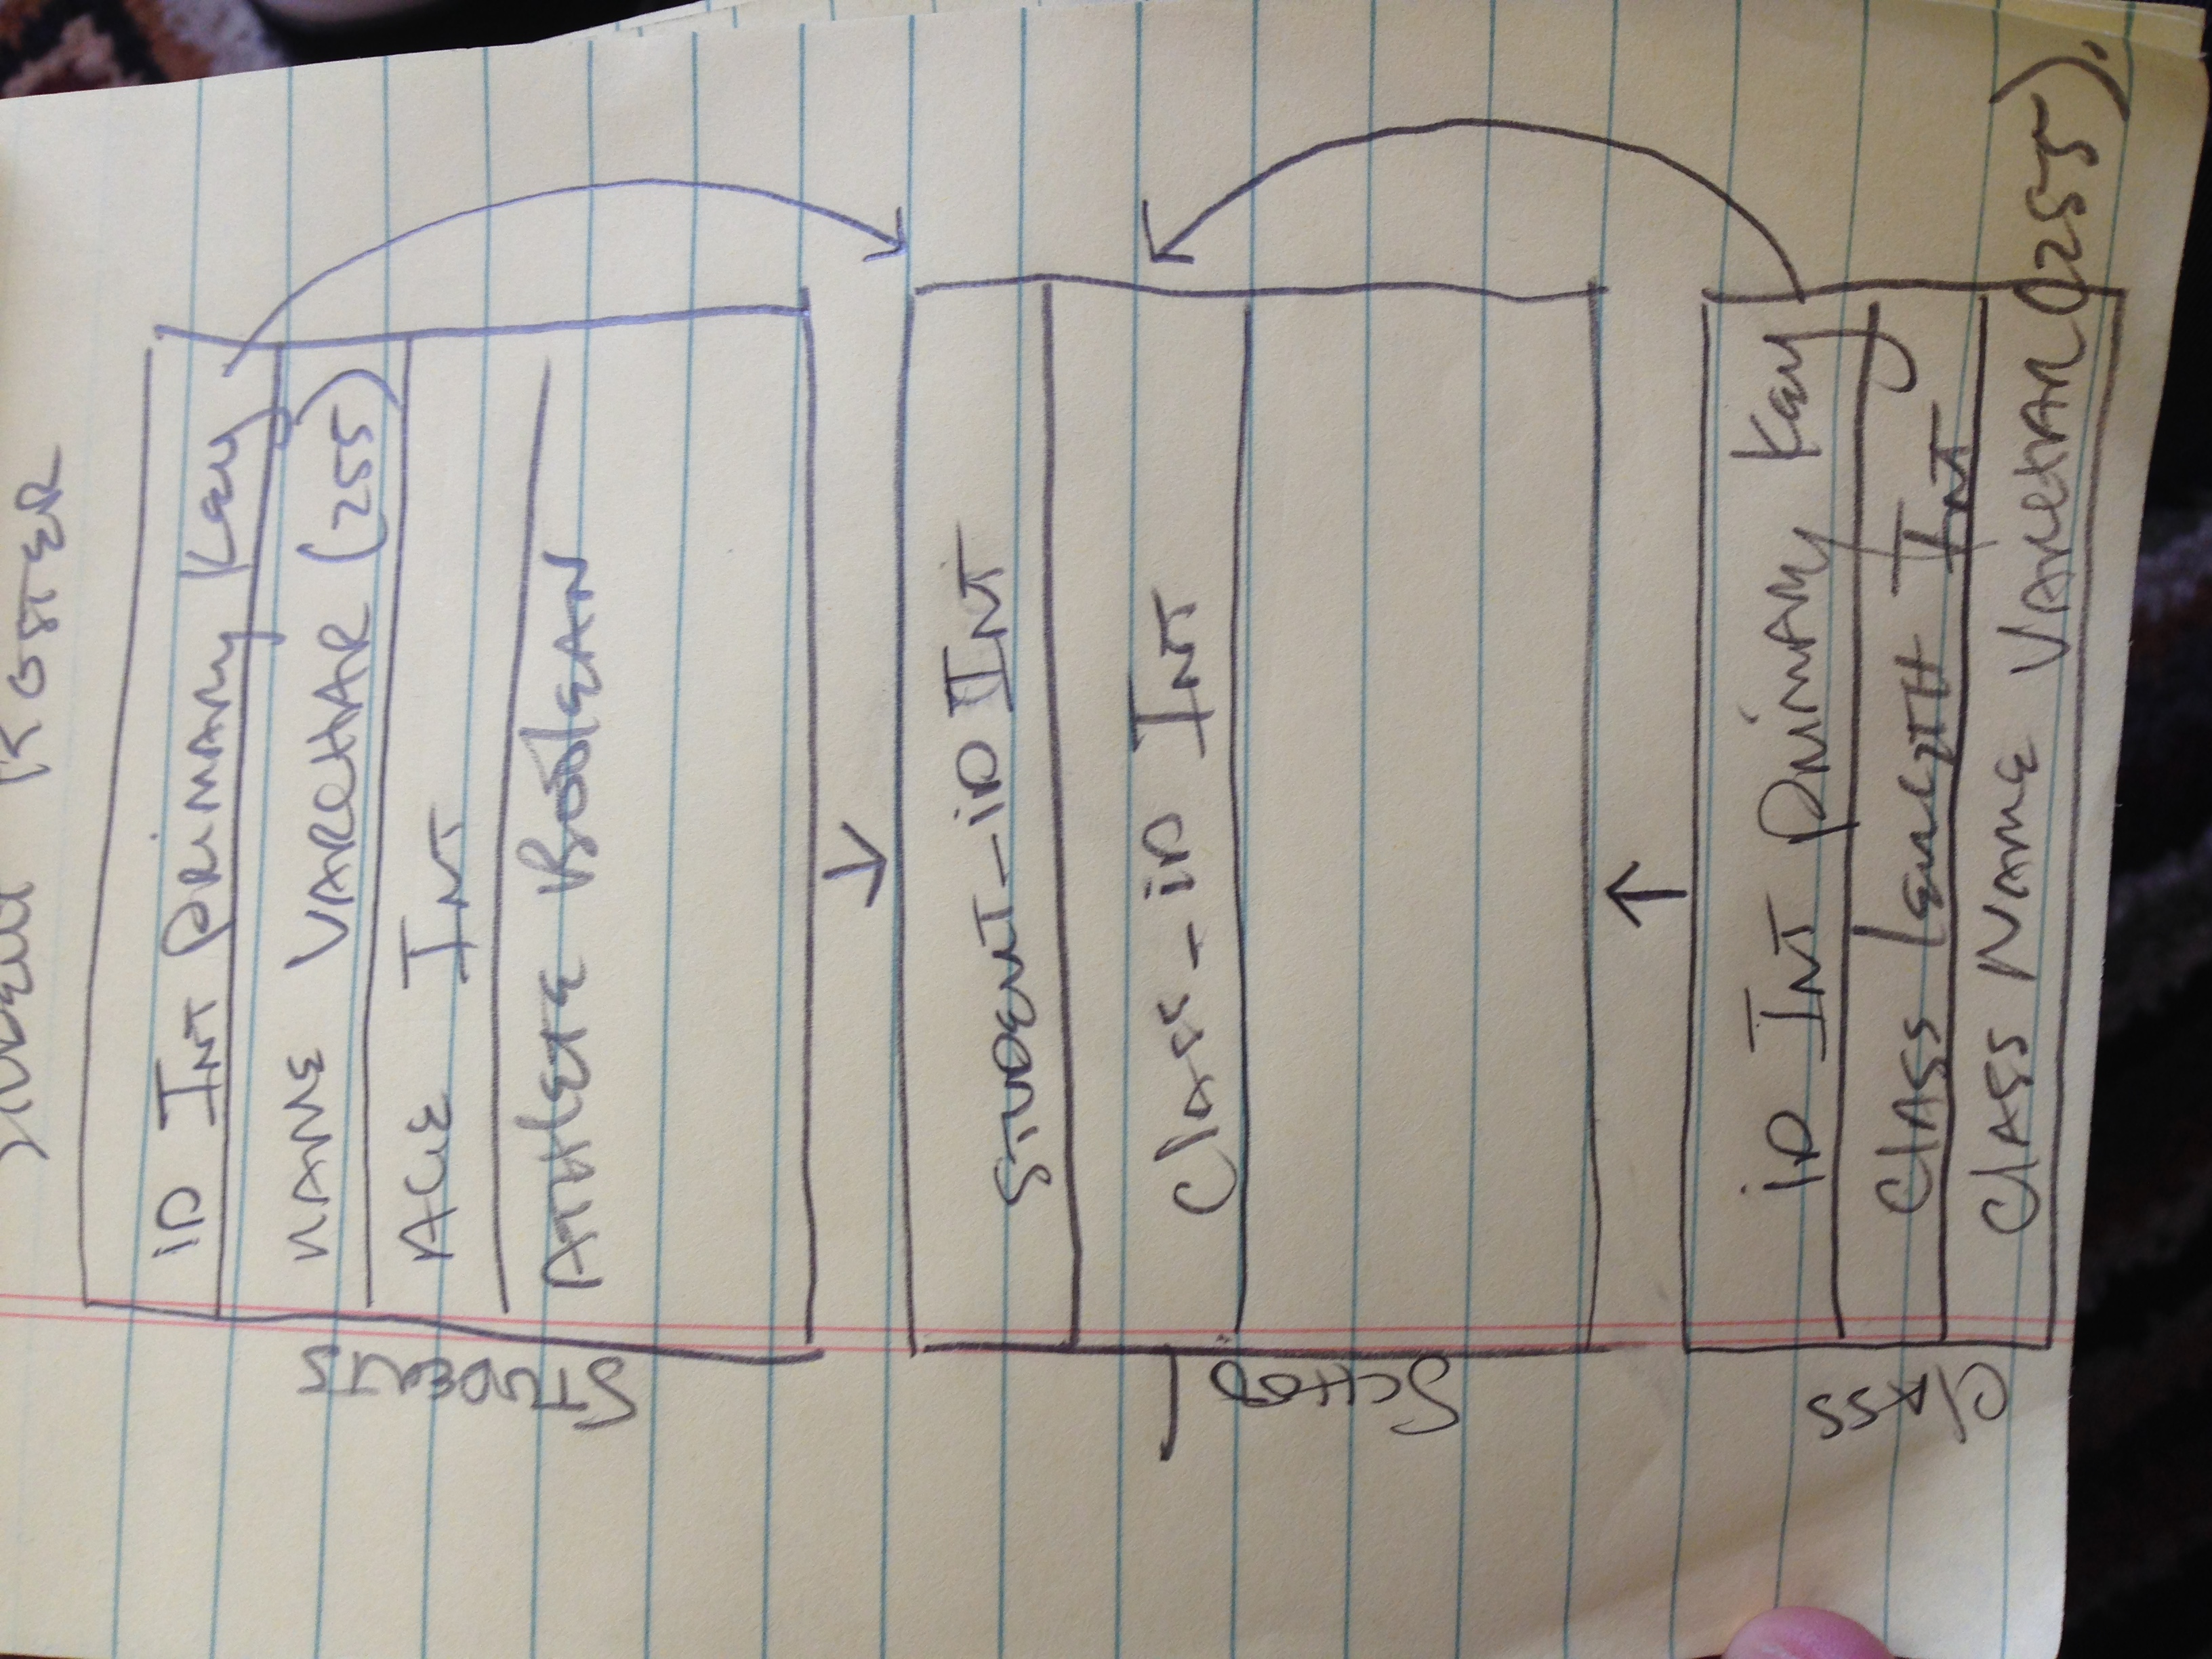 STUDENT ROSTER
STUDENTS
ID INT PRIMARY KEY
NAME VARCHAR (255)
AGE INT
ATHLETE BOOLEAN
SCHOOL
STUDENT_ID INT
CLASS_ID INT
CLASS
ID INT PRIMARY KEY
CLASS LENGTH INT
CLASS NAME VARCHAR (255).